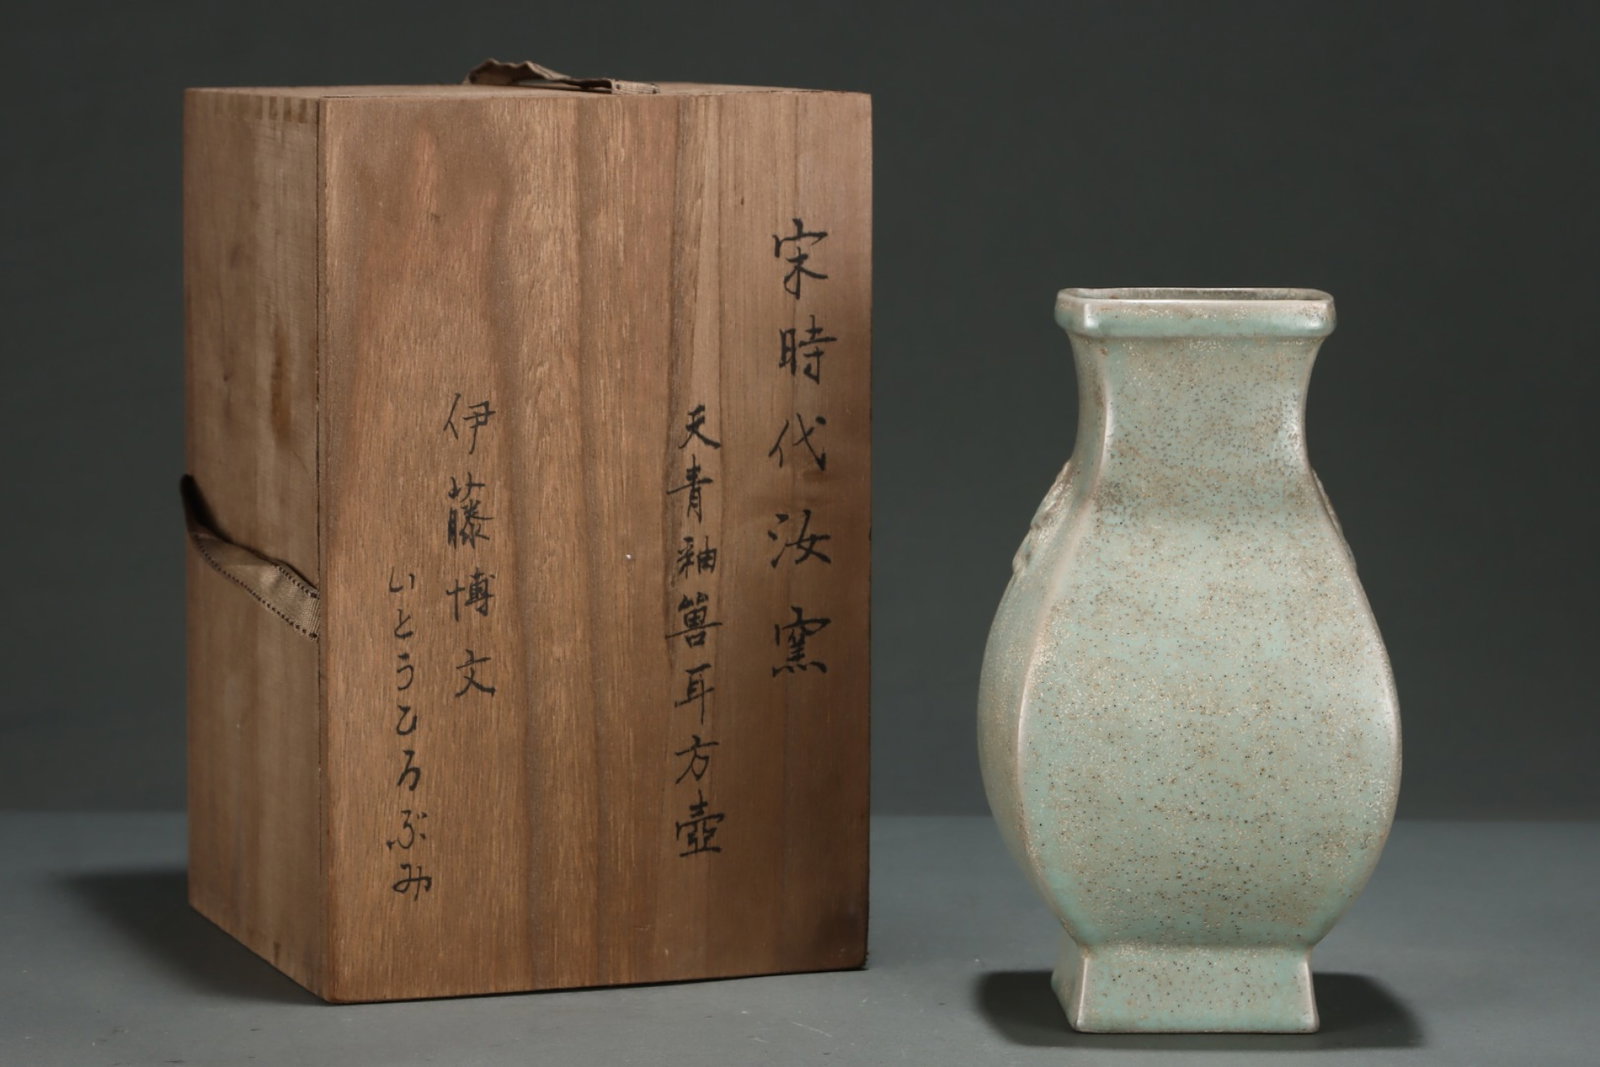 宋時代汝窯
天青釉兽耳方壺
伊藤博文
いとうひろぶみ